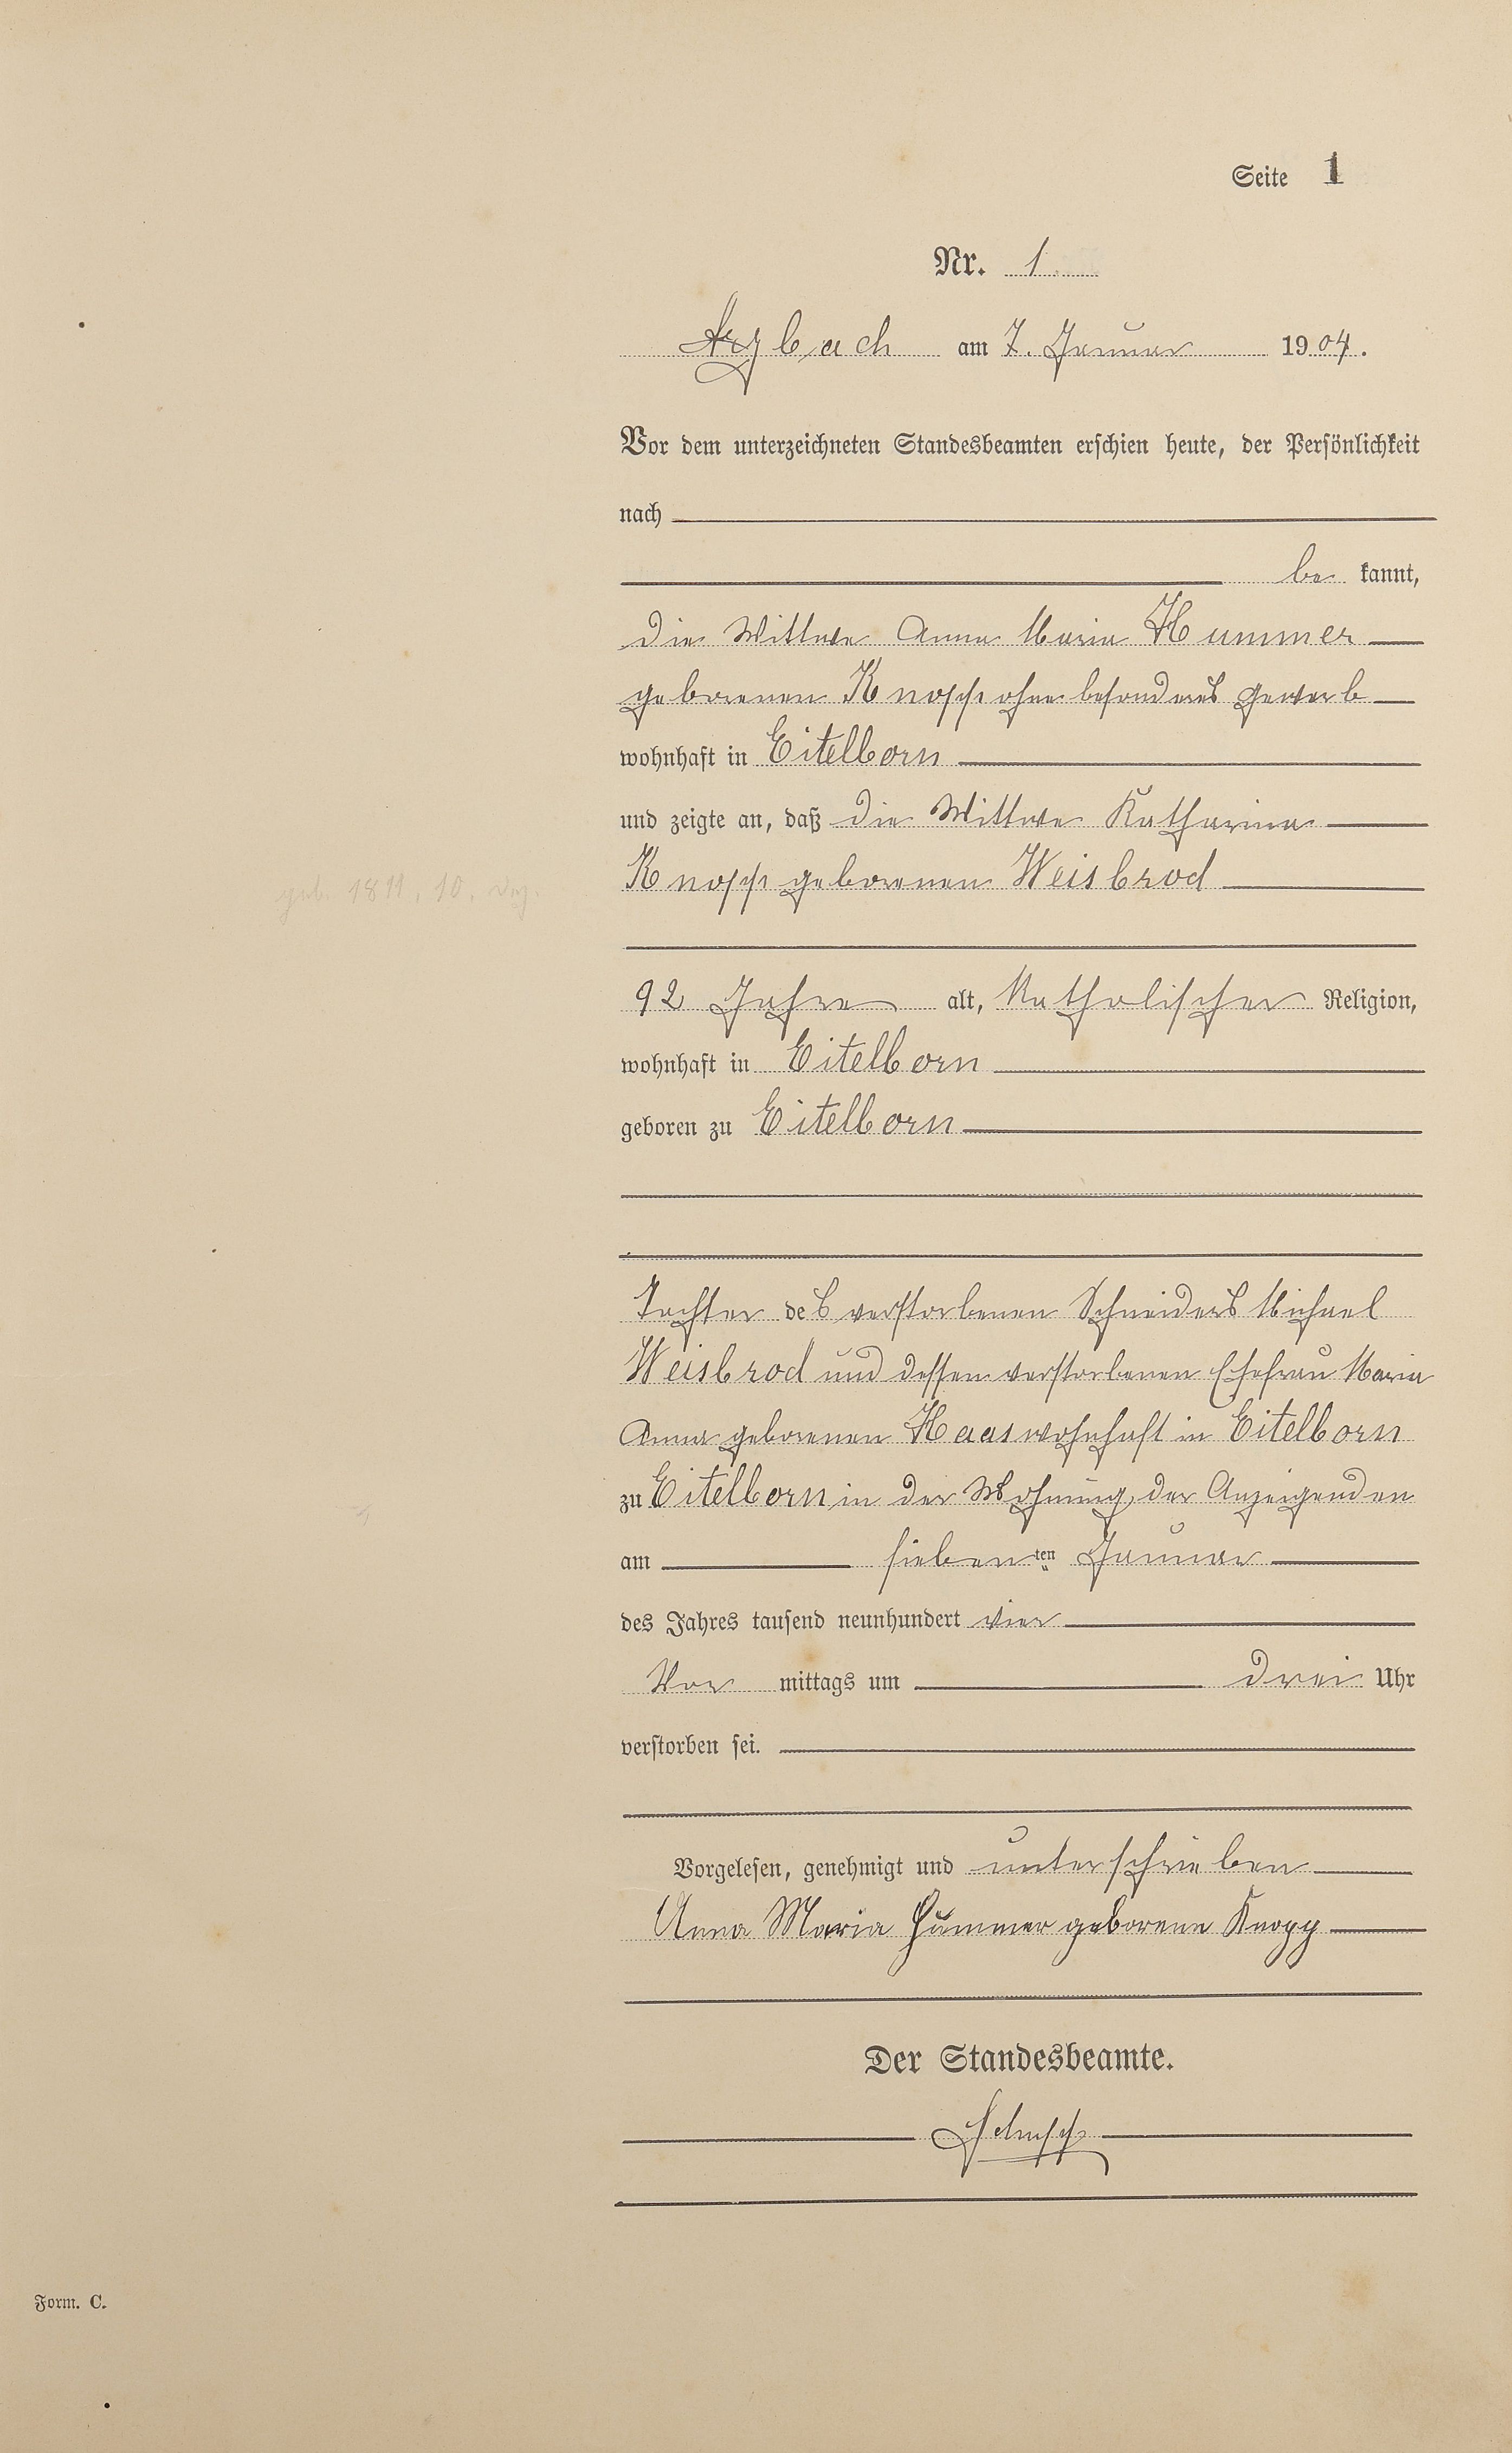 Seite 1
Nr. 1
Arzbach am 7. Januar 1904.
Vor dem unterzeichneten Standesbeamten erschien heute, der Persönlichkeit
nach
be kannt,
die Wittwe Anna Maria Hummer
geborenen Knopp ohne besonderes Gewerb
wohnhaft in Eitelborn
und zeigte an, daß die Wittwe Katharina
Knopp geborenen Weisbrod
geb. 1811, 10.
92 Jahre alt, katholischer Religion,
wohnhaft in Eitelborn
geboren zu Eitelborn
Tochter des verstorbenen Schneiders Michael
Weisbrod und dessen verstorbenen Ehefrau Maria
Anna geborenen Haas wohnhaft in Eitelborn
zu Eitelborn in der Wohnung der Anzeigenden
am siebenten Januar
des Jahres tausend neunhundert vier
Vor mittags um drei Uhr
verstorben sei.
Vorgelesen, genehmigt und unterschrieben
Anna Maria Hummer geborene Knopp
Der Standesbeamte.
Form. C.